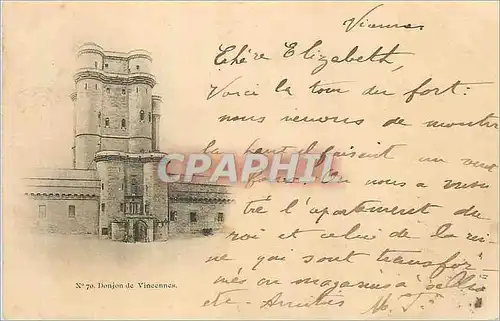 Chère Elizabeth,
Voici la tour du fort:
nous venons de monter
là haut il faisait un vent
CPARPHIL
On nous a mon
tré l'apartement du
roi et celui de la rei
ne qui sont transfor
més en magasins
Amitiés M.
Nº 70. Donjon de Vincennes.